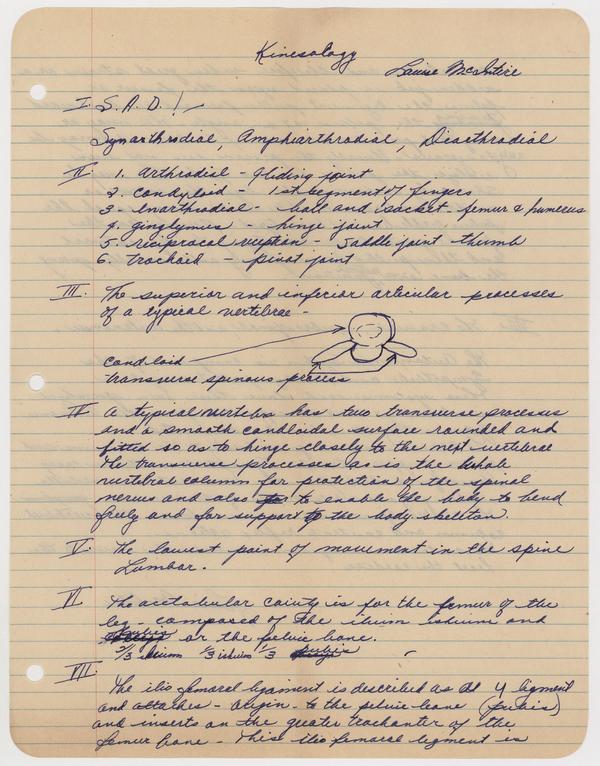 Kinesology
Louise McIntire
I. S.A.D.!
Synarthrodial, Amphiarthrodial, Diaethrodial
II. 1. arthrodial - gliding joint
2. condyloid - 1st segment of fingers
3 - Enarthrodial - ball and socket - femur & humerus
4. ginglymus - hinge joint
5. reciprocal reception - saddle joint thumb
6. trochoid - pivot joint
III. The superior and inferior articular processes
of a typical vertebrae -
condloid
transverse spinous process
IV A typical vertebra has two transverse processes
and a smooth condloidal surface rounded and
fitted so as to hinge closely to the next vertebrae
The transverse processes as is the whole
vertebral column for protection of the spinal
nerves and also to enable the body to bend
freely and for support to the body skeleton.
V. The lowest point of movement in the spine
Lumbar.
VI The acetabular cavity is for the femur of the
leg - composed of the ilium ischium and
or the pelvic bone.
1/3 ischium 1/3 pubis
VII.
The ilio femoral ligament is described as a Y ligment
and attaches - origin - to the pelvic bone (pubis)
and inserts on the greater trochanter of the
femur bone - This ilio femoral ligment is